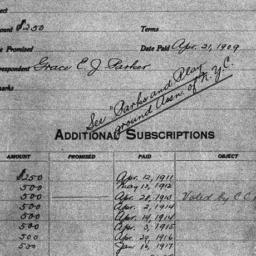 ect
ount $250 Terms
e Promised Date Paid Apr. 21, 1909
respondent Grace C. J. Parker
marks
See "Parks and Play
ground Assn. of N.Y.C.
ADDITIONAL SUBSCRIPTIONS
AMOUNT PROMISED PAID OBJECT
$250 Apr. 12, 1911
500 May 13, 1912
500 Apr. 28, 1913 Voted by C.C.
500 Apr. 2, 1914
500 Apr. 14, 1914
500 Apr. 3, 1915
500 Apr. 29, 1916
500 Jan. 16, 1917